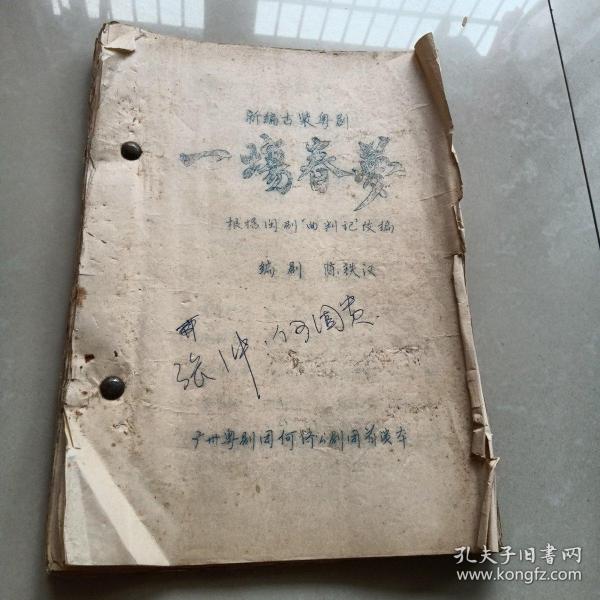 新编古装粤剧
一場春夢
根据闽剧"曲判记"改编
编剧 陈铁汉
張冲.何国贵
广州粤剧团何济公剧团首演本
孔夫子旧书网
www.kongfz.com